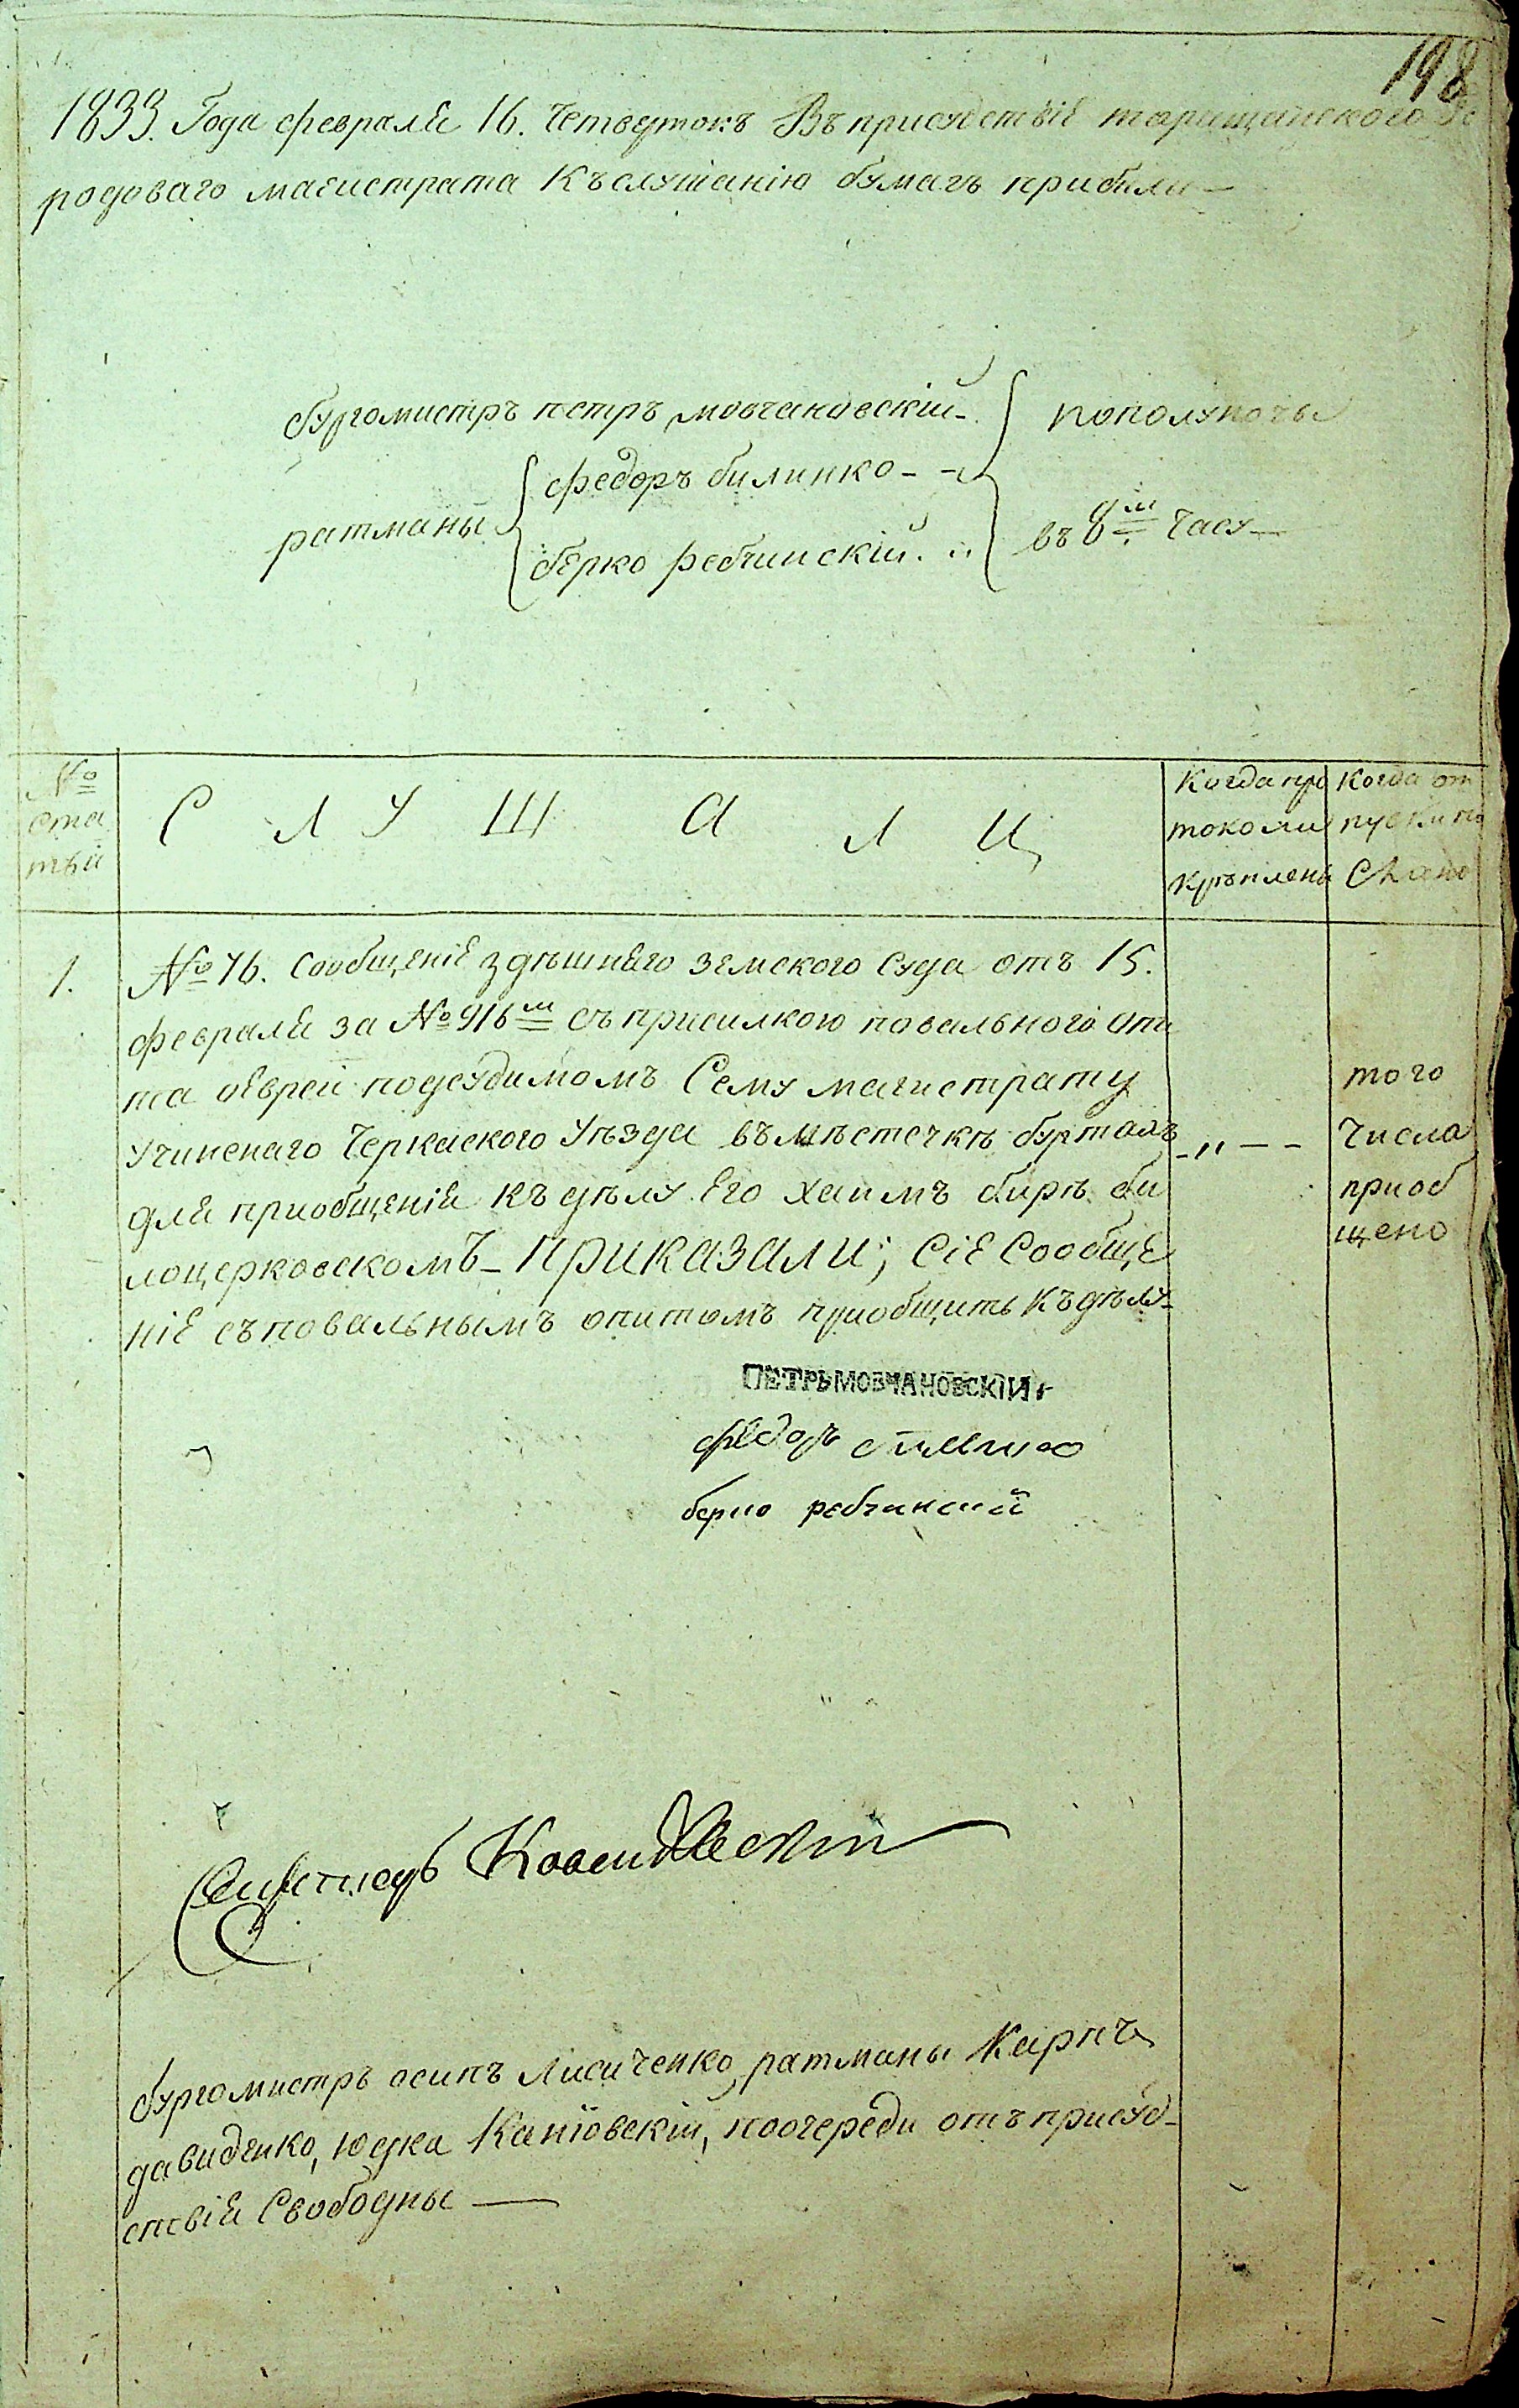 198
1833. Года февраля 16. Четвертокъ Въ присуствіе таращанского го
родоваго магистрата Къ слушанію бумагъ прибыли –
бургомистръ петръ мовчановскій – пополуночы
ратманы федоръ билинко – –
берко ребчинскій . „ въ 8м часу –
№ ста тьи
С Л У Ш А Л И
Когда про токолы крѣплены
Когда от пуски по
1. №76. Сообщеніе здѣшняго земского Суда отъ 15.
февраля за №916м съ присилкою повального опи
та оеврей подсудимомъ Сему магистрату
Учиненаго Черкаского Уѣзда въ мѣстечкѣ буртахъ – „ – – того Числа приоб щено
для приобщенія къ дѣлу Его хаимъ бирѣ би
лоцерковскомъ – приказали; Сіе Сообще
ніе съ повальнымъ опитомъ приобщить къ дѣлу –
ПЕТРЪ МОВЧАНОВСКІЙ
федоръ билинко
берко ребчинский
бургомистръ осипъ Лисиченко, ратманы Карпъ
давиденко, юдка Каніовскій, поочереди отъ присуд–
ствія Свободны —